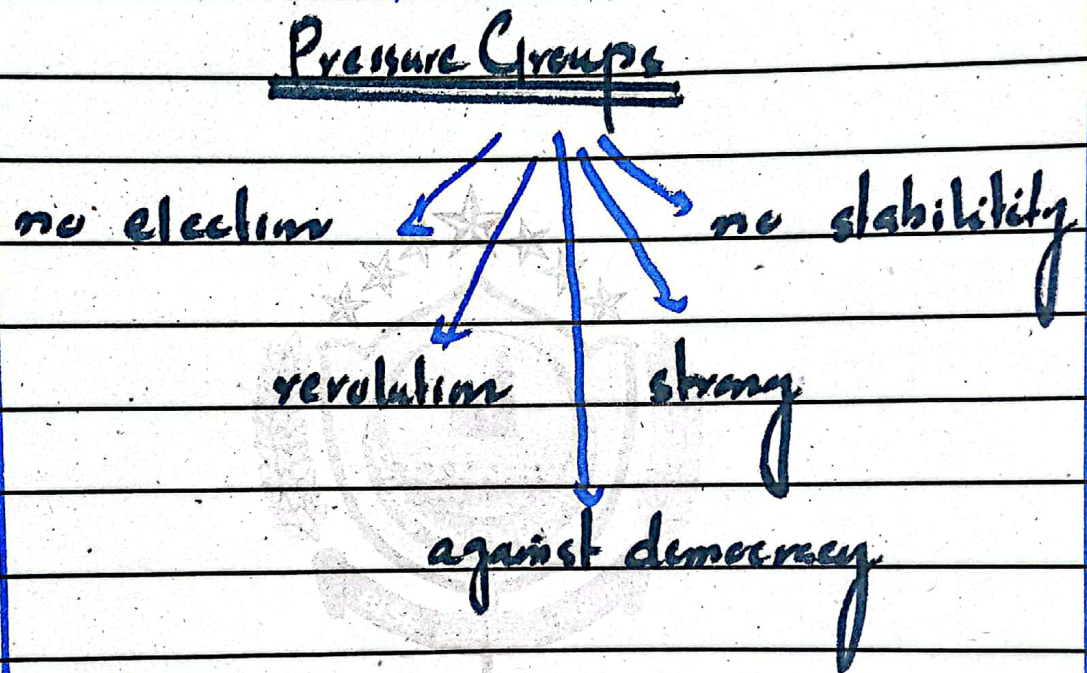 Pressure Groups
no election
no stabilitity
revolution
strong
against democracy